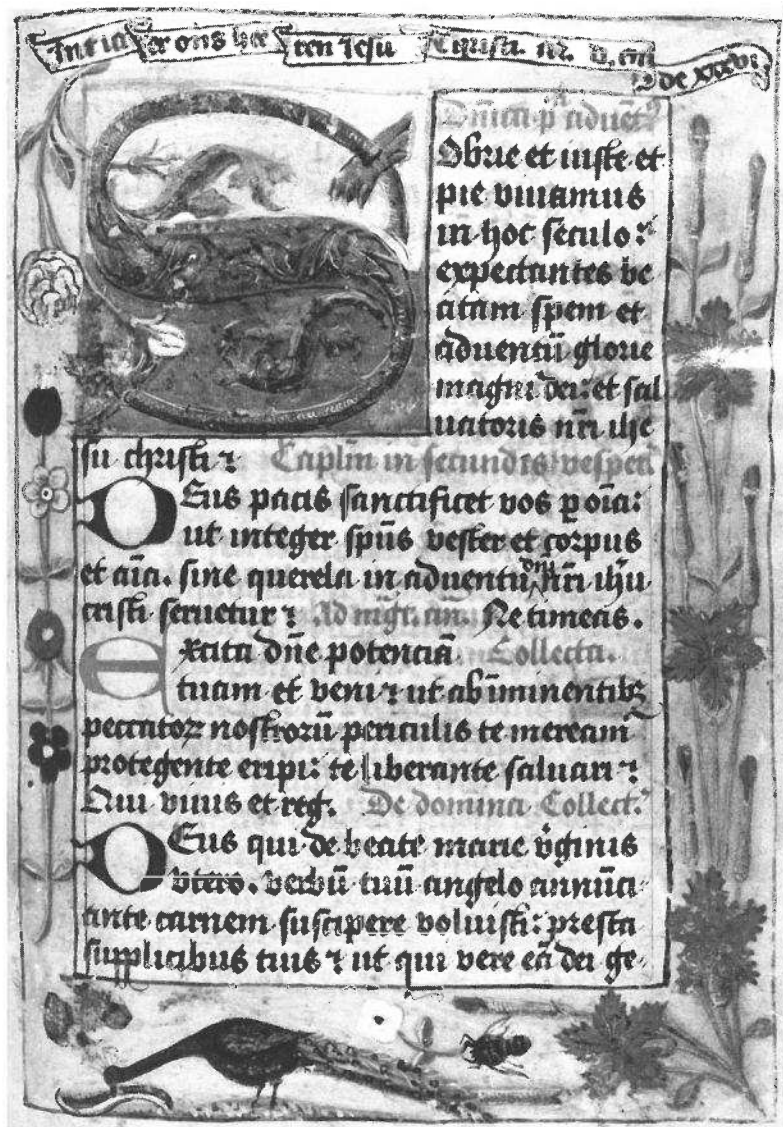 Int iaer ons heeren Jesu Christi. M. D. en de xxxvi
Dnica p^a aduet^9
Obrie et iuste et
pie viuamus
in hoc seculo:
expectantes be
atam spem et
aduentū glorie
magni dei: et sal
uatoris nr̄i ihe
su christi ⁊ Caplm̄ in secundis vesper̄
DEus pacis sanctificet vos ꝑ oīa:
ut integer spūs vester et corpus
et aīa. sine querela in aduentu dnī nr̄i ihū
cristi seruetur ⁊ Ad mgr̄. an̄. Ne timeas.
Excita dn̄e potenciā Collecta.
tuam et veni ⁊ ut ab īminentibꝫ
peccatoꝝ nostrorū periculis te meream̄
protegente eripi: te liberante saluari ⁊
Qui viuis et reg. De domina Collect.
DEus qui de beate marie v̄ginis
vtero. verbū tuū angelo annūci-
ante carnem suscipere voluisti: presta
supplicibus tuis ⁊ ut qui vere eā dei ge-